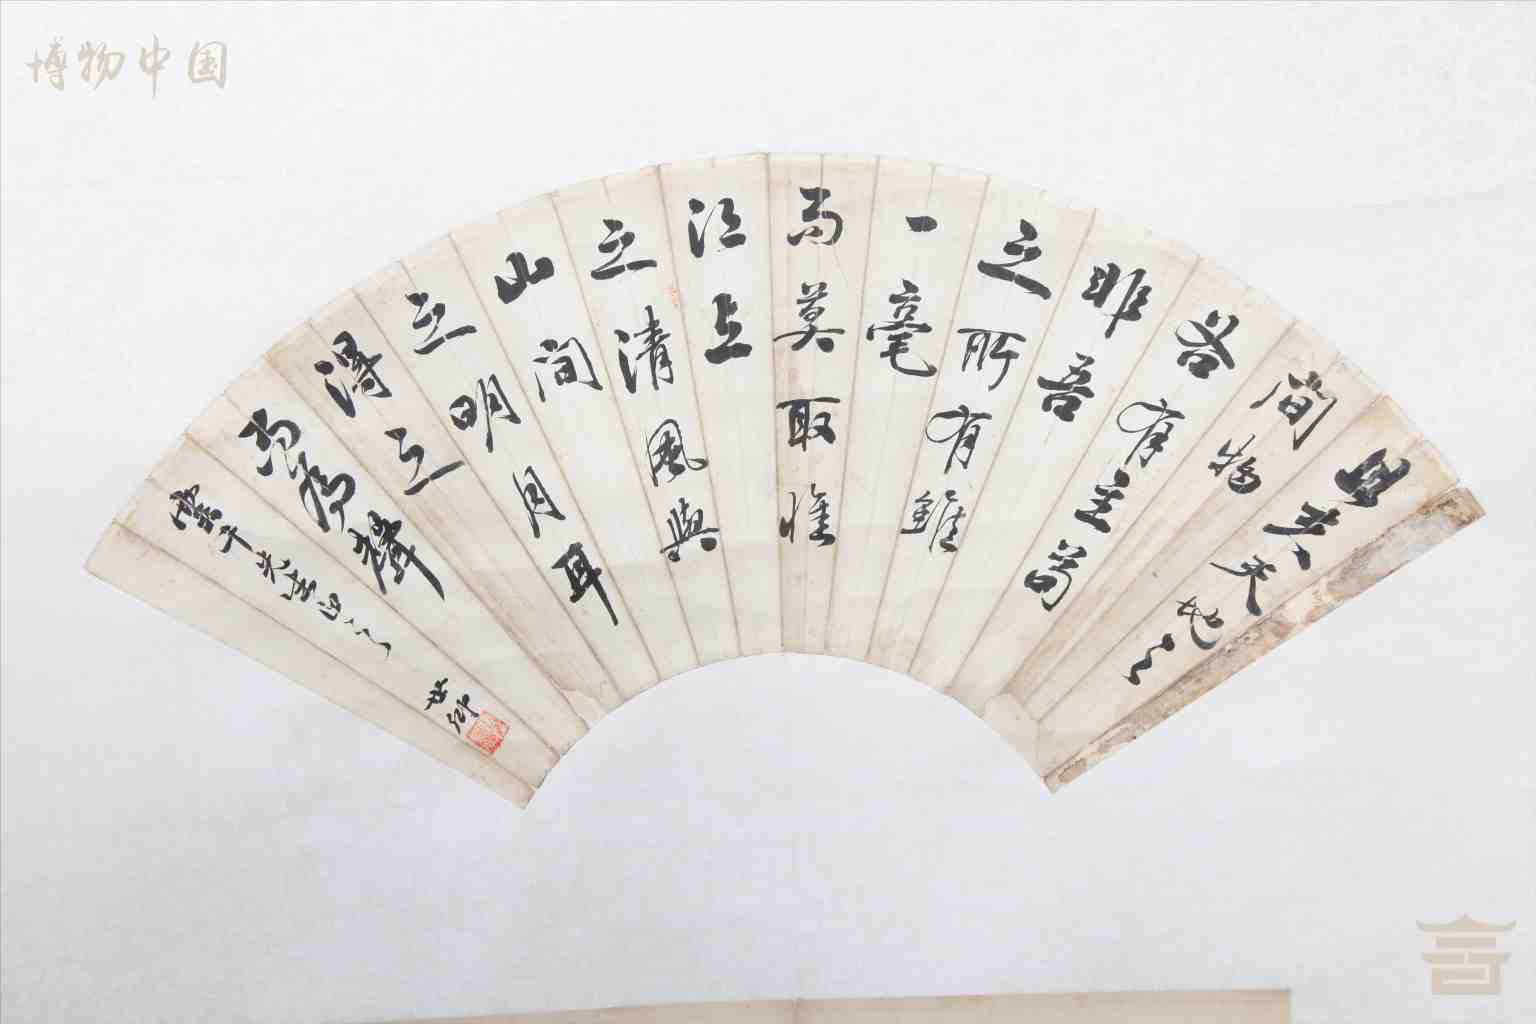 博物中国
且夫天地之
間物
各有主苟
非吾
之所有雖
一毫
而莫取惟
江上
之清風與
山間
之明月耳
得之
而為聲
先生